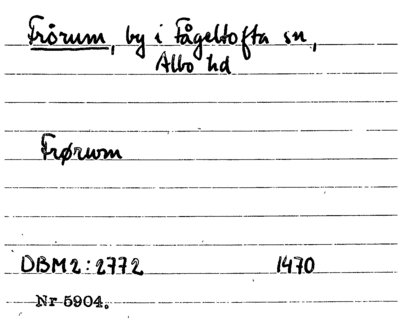 Frörum, by i Fågeltofta sn,
Albo hd
Frørwm
DBM2:2772 1470
Nr 5904.